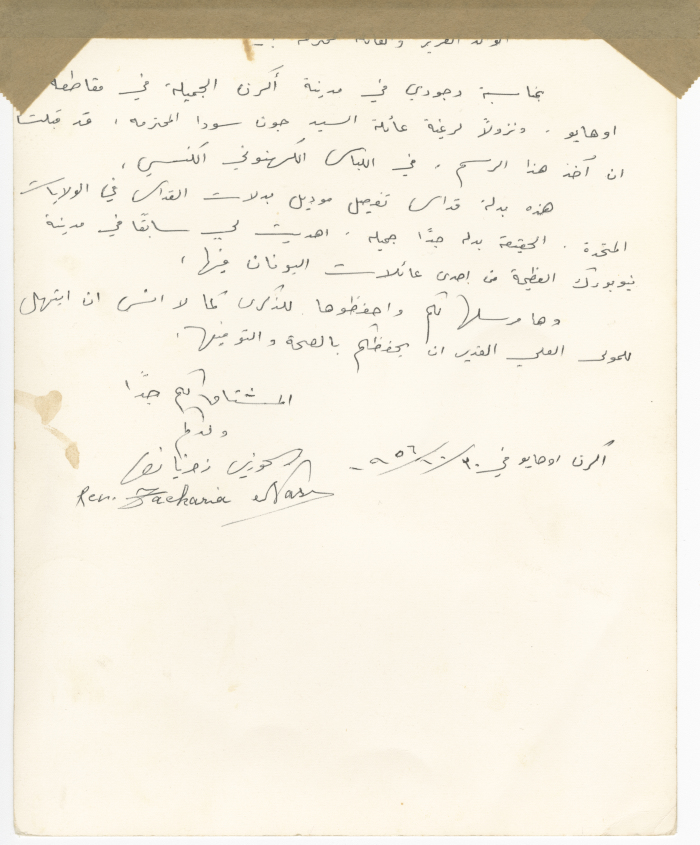 الوالد العزيز و
بمناسبة وجودي في مدينة أكرن الجميلة في مقاطعة
اوهايو . ونزولاً لرغبة عائلة السيد جون سودا المحترمه ، قد قبلت
ان آخذ هذا الرسم . في اللباس الكهنوتي الكنسي ،
هذه بدلة قداس تفصيل موديل بدلات القداس في الولايات
المتحدة . الحقيقة بدله جدًا جميله . اهديت لي سابقًا في مدينة
نيويورك العظيمة من إحدى عائلات اليونان فيها ،
وها مرسلها لكم واحفظوها للذكرى كما لا انسى ان ابتهل
للمولى العلي القدير ان يحفظكم بالصحة والتوفيق .
المشتاق لكم جدًا
ولدكم
الخوري زخريا
اكرن اوهايو في ٣٠/١٠/٩٥٦
Rev. Zacharia Nasr